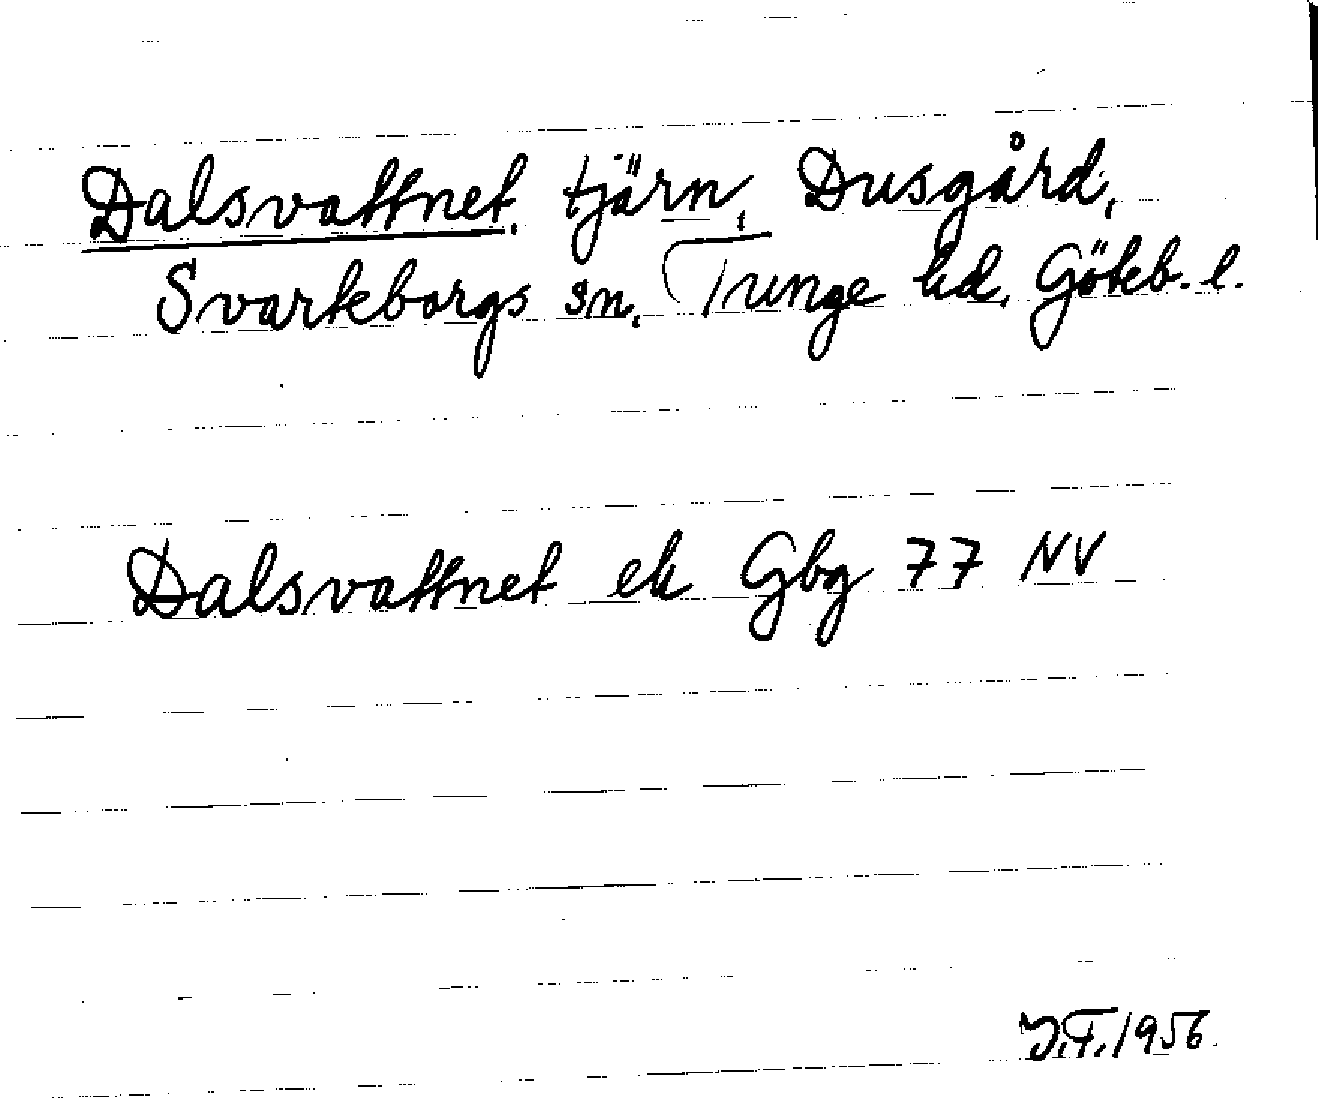 Dalsvattnet, tjärn, Dusgård,
Svarteborgs sn, Tunge hd, Göteb. l.
Dalsvattnet ek Gbg 77 NV
J.T. 1956